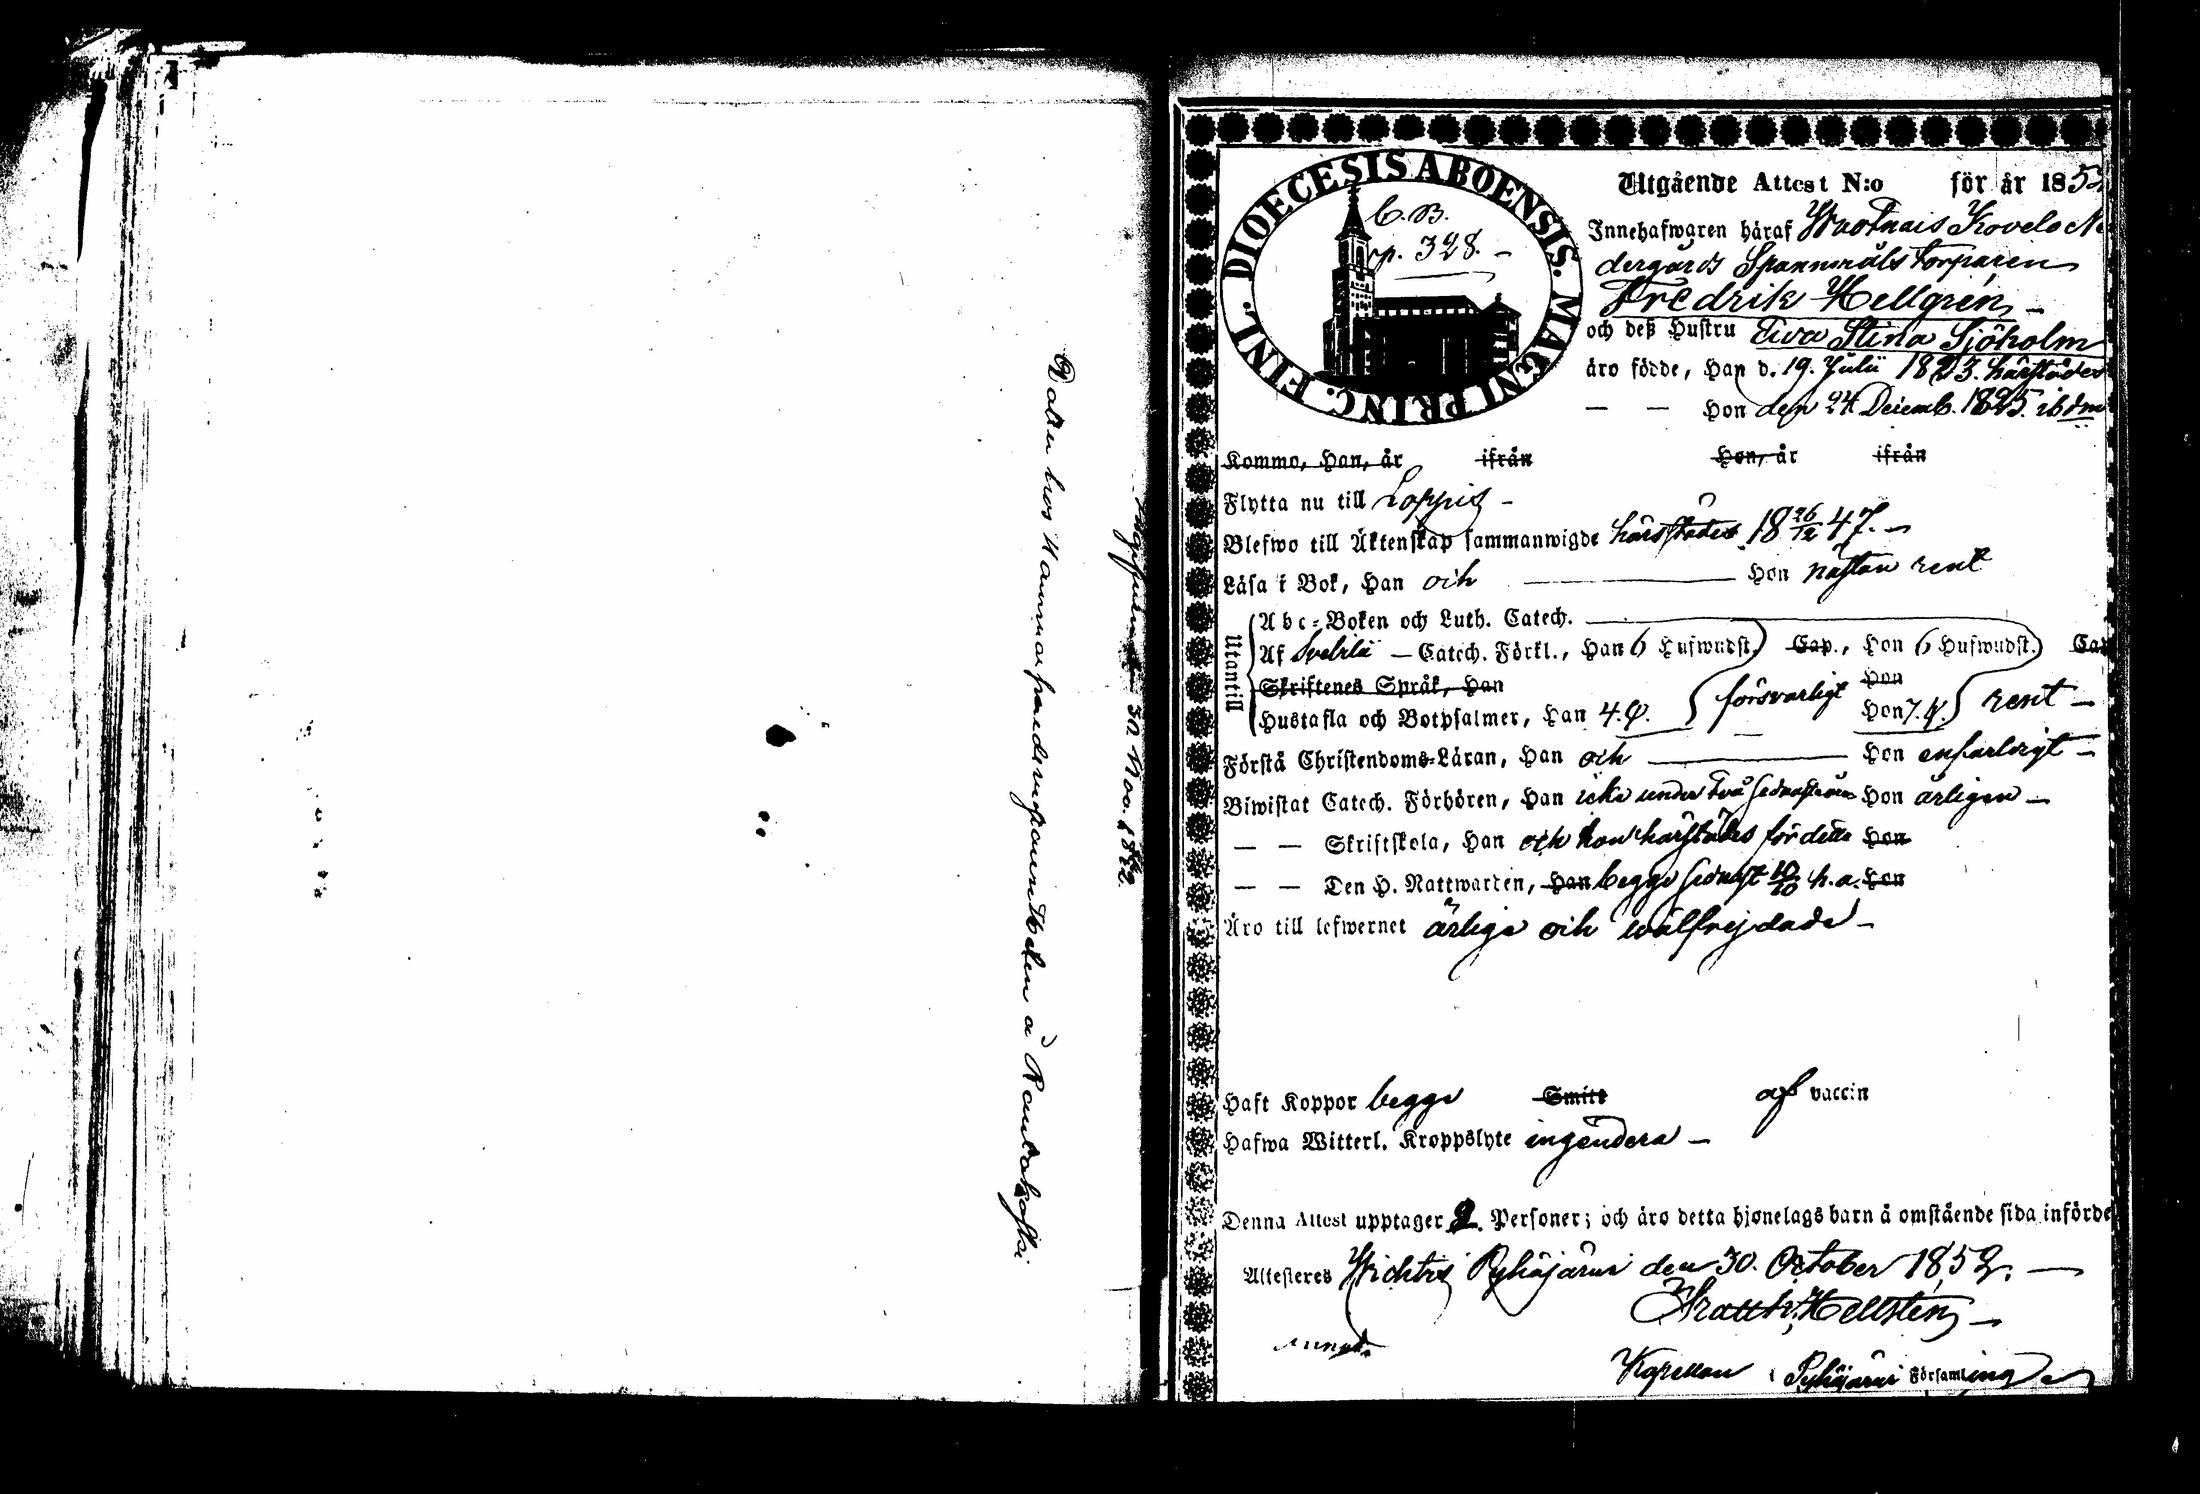 DIOECESIS ABOENSIS. MAGNI PRINC. FINL.
C. B.
p. 328. -
Utgående Attest N:o för år 185
Innehafwaren häraf
dergårds Spannmåls torparen
Fredrik Hellgren, -
och deß Hustru Ewa Stina Sjöholm
äro födde, Han d. 19. Julii 1823. härstädes
— — Hon den 24 Decemb. 1825. ibdm
Kommo, Han, år ifrån Hon, år ifrån
Flytta nu till Loppis -
Blefwo till Äktenskap sammanwigde härstädes 18 26/12 47. -
Läsa i Bok, Han och Hon nästan rent
Utantill
Abc-Boken och Luth. Catech.
Af Svebilii - Catech. Förkl., Han 6 Hufwudst. Cap., Hon 6 Hufwudst. Cap
Skriftenes Språk, Han Hon
Hustafla och Botpsalmer, Han 4. försvarligt Hon 7. rent -
Förstå Christendoms-Läran, Han och Hon enfaldigt -
Biwistat Catech. Förhören, Han icke under två sednaste åren Hon årligen -
— — Skriftskola, Han och hon härstädes för detta Hon
— — Den H. Nattwarden, Han begge sednast 10/10 h. a. Hon
Äro till lefwernet ärliga och wälfrejdade -
Haft Koppor begge Smitt af vaccin
Hafwa Witterl. Kroppslyte ingendera -
Denna Attest upptager 2. Personer; och äro detta hjonelags barn å omstående sida införde
Attesteres Wichtis Pyhäjärwi den 30. October 1852. —
Hellsten, -
Kapellan i Pyhäjärwi Församling
30 Nov. 1852.